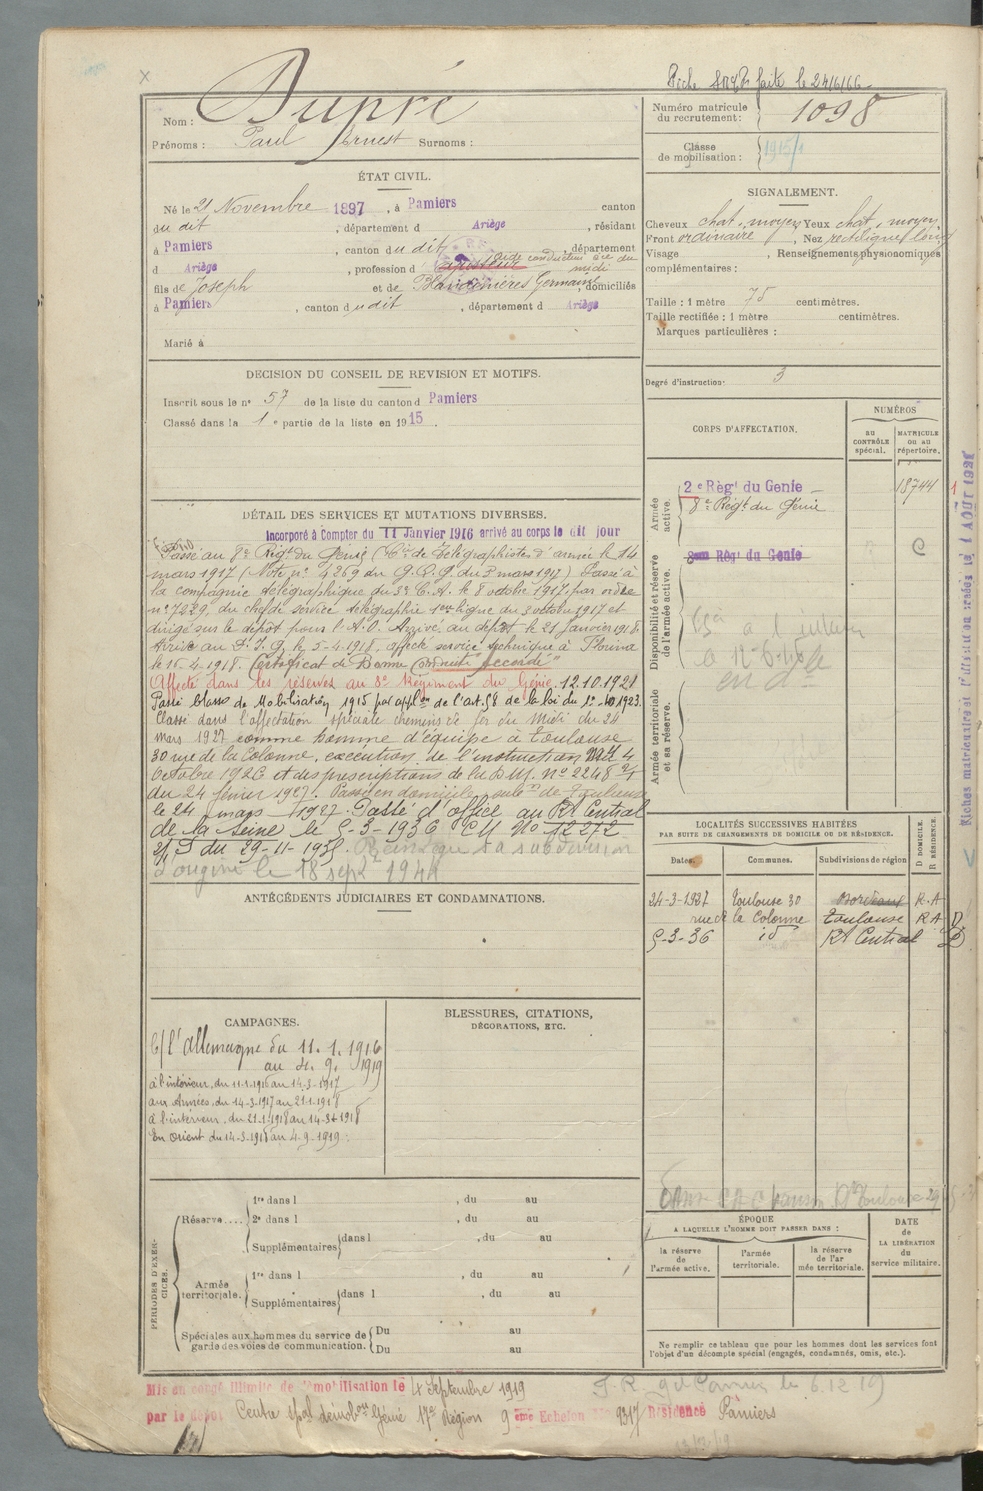 Fiche faite le 24/6/66
Nom : Dupré
Prénoms : Paul Ernest Surnoms :
Numéro matricule du recrutement : 1098
Classe de mobilisation : 1915/1
ÉTAT CIVIL.
Né le 21 Novembre 1897, à Pamiers canton
du dit, département d Ariège, résidant
à Pamiers, canton du dit, département
d Ariège, profession d aide conducteur au midi
fils de Joseph et de Germaine, domiciliés
à Pamiers, canton du dit, département d Ariège
Marié à
SIGNALEMENT.
Cheveux chat. moyen Yeux chat. moyen
Front ordinaire, Nez rectiligne long
Visage , Renseignements physionomiques
complémentaires :
Taille : 1 mètre 75 centimètres.
Taille rectifiée : 1 mètre centimètres.
Marques particulières :
DECISION DU CONSEIL DE REVISION ET MOTIFS.
Inscrit sous le n° 57 de la liste du canton d Pamiers
Classé dans la 1e partie de la liste en 1915.
Degré d'instruction : 3
CORPS D'AFFECTATION.
NUMÉROS
AU CONTRÔLE spécial.
MATRICULE OU AU répertoire.
Armée active.
2e Régt du Genie
8e Régt du Génie
18744
Disponibilité et réserve de l'armée active.
8me Régt du Genie
Armée territoriale et sa réserve.
DÉTAIL DES SERVICES ET MUTATIONS DIVERSES.
Incorporé à Compter du 11 Janvier 1916 arrivé au corps le dit jour
Passé au 8e Régt du Génie (Cie de Télégraphistes d'armée le 14
mars 1917 (Note n° 4269 du G.Q.G. du 3 mars 1917) Passé à
la compagnie télégraphique du 37 C.A. le 8 octobre 1917, par ordre
n° 7229, du chef de service télégraphie 1ere ligne du 3 octobre 1917 et
dirigé sur le dépôt pour l'A.O. Arrivé au dépôt le 21 janvier 1918.
Arrivé au le 5-4-1918, affecté service technique à Florina
le 15-4-1918. Certificat de Bonne Conduite "accordé"
Affecté dans les réserves au 8e Régiment du Génie. 12.10.1921
Passé classe de Mobilisation 1915 par applon de l'art. 58 de la loi du 1er 1923.
Classé dans l'affectation spéciale chemins de fer du Midi du 24
mars 1927 comme homme d'équipe à Toulouse
30 rue de la Colonne, exécution de l'instruction du 4
Octobre 1926 et des prescriptions de la D.M. n° 2248
du 24 février 1927. Passé en domicile subon de Toulouse
le 24 mars 1927. Passé d'office au Rt Central
de la Seine le 5-3-1936 C M N° 12272
du 29-11-1935. sa subdivision
d'origine le 18 sept
ANTÉCÉDENTS JUDICIAIRES ET CONDAMNATIONS.
LOCALITÉS SUCCESSIVES HABITÉES
PAR SUITE DE CHANGEMENTS DE DOMICILE OU DE RÉSIDENCE.
Dates.
Communes.
Subdivisions de région
D DOMICILE. R RÉSIDENCE.
24-3-1927 Toulouse 30 Bordeaux R.A
rue de la Colonne Toulouse R A D
5-3-36 id Rt Central D
CAMPAGNES.
C/ l'Allemagne du 11.1.1916
au 4.9.1919
à l'intérieur, du 11-1-1916 au 14-3-1917
aux Armées, du 14-3-1917 au 21-1-1918
à l'intérieur, du 21-1-1918 au 14-3-1918
En Orient du 14-3-1918 au 4-9-1919.
BLESSURES, CITATIONS,
DÉCORATIONS, ETC.
PÉRIODES D'EXERCICES.
Réserve....
1re dans l , du au
2e dans l , du au
Supplémentaires dans l , du au
Armée territoriale.
1re dans l , du au
Supplémentaires dans l , du au
Spéciales aux hommes du service de garde des voies de communication.
Du au
Du au
ÉPOQUE
A LAQUELLE L'HOMME DOIT PASSER DANS :
la réserve de l'armée active.
l'armée territoriale.
la réserve de l'armée territoriale.
DATE DE LA LIBÉRATION du service militaire.
Ne remplir ce tableau que pour les hommes dont les services font
l'objet d'un décompte spécial (engagés, condamnés, omis, etc.).
Mis en congé illimité de démobilisation le 4 Septembre 1919
par le dépôt Centre spal démobon Génie 17e Région 9 ème Echelon N° 9317 Résidence Pamiers
le 6.12.19